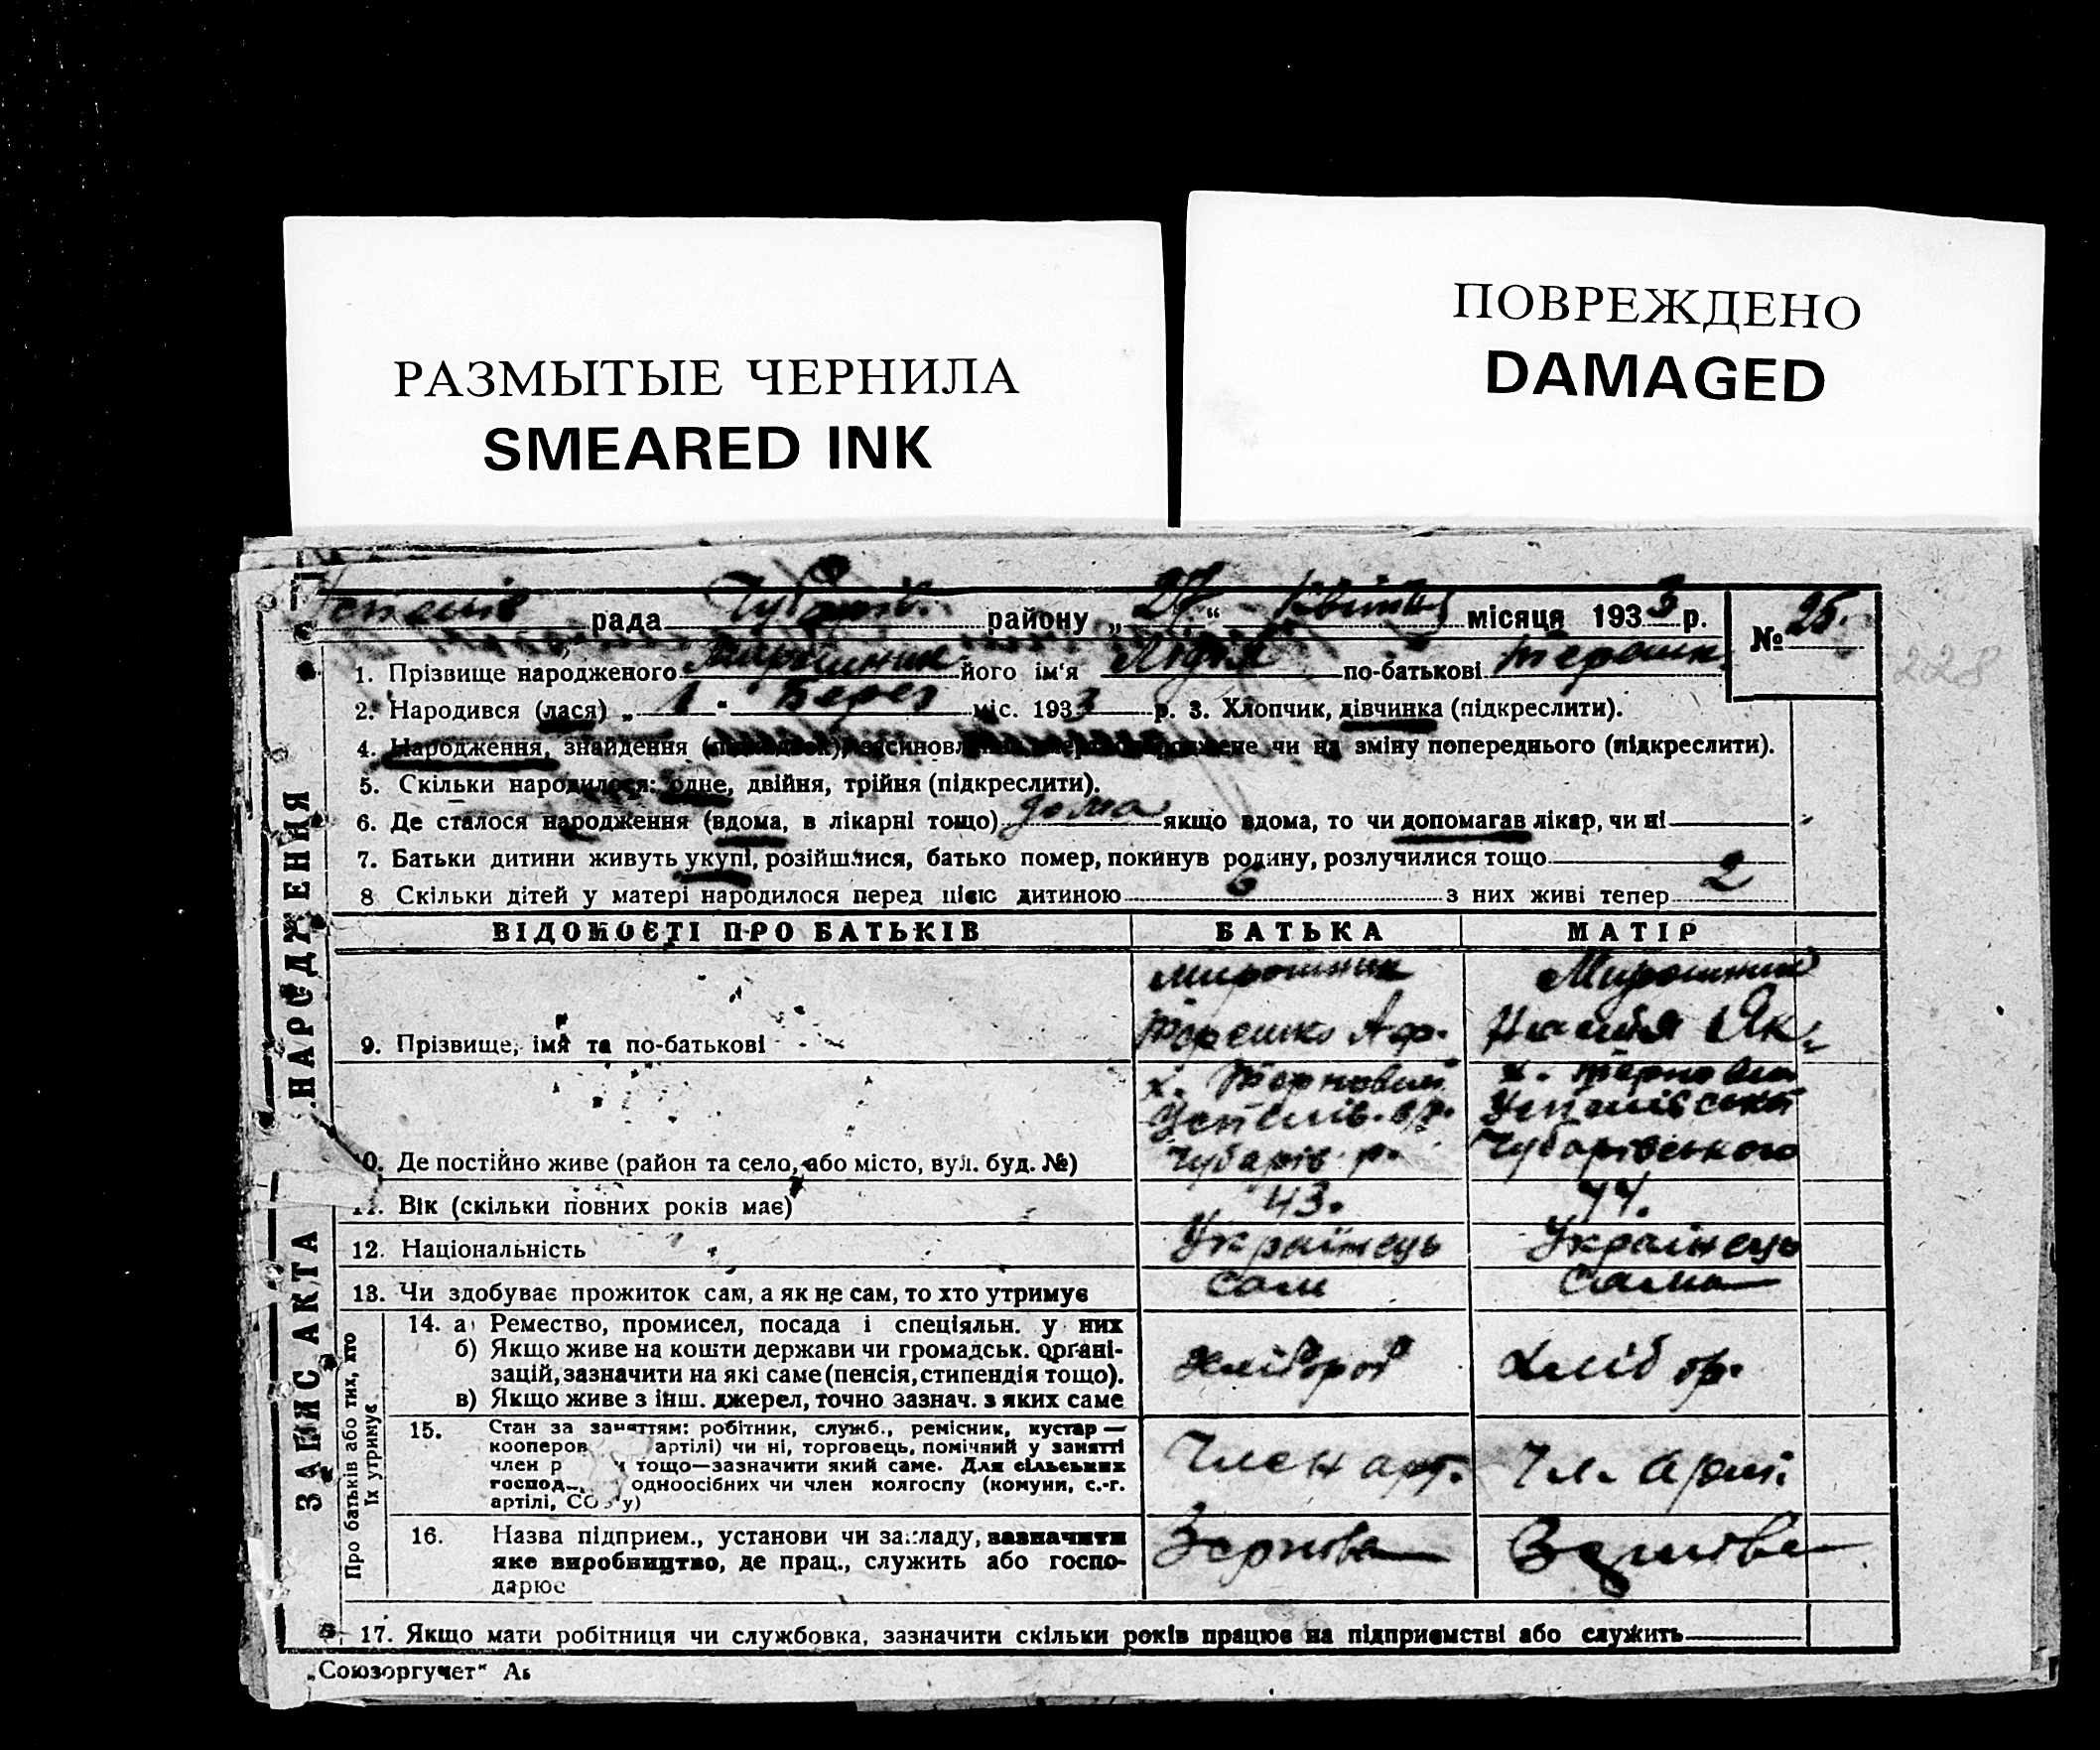 РАЗМЫТЫЕ ЧЕРНИЛА
SMEARED INK
ПОВРЕЖДЕНО
DAMAGED
рада району „27“ місяця 1933 р.
№ 25.
228
1. Прізвище народженого його ім'я Лідія по-батькові
2. Народився (лася) „1“ Берез міс. 1933 р. 3. Хлопчик, дівчинка (підкреслити).
4. Народження, знайдення чи на зміну попереднього (підкреслити).
5. Скільки народилося: одне, двійня, трійня (підкреслити).
6. Де сталося народження (вдома, в лікарні тощо) дома якщо вдома, то чи допомагав лікар, чи ні
7. Батьки дитини живуть укупі, розійшлися, батько помер, покинув родину, розлучилися тощо
8 Скільки дітей у матері народилося перед цією дитиною 6 з них живі тепер 2
ВІДОМОСТІ ПРО БАТЬКІВ БАТЬКА МАТІР
Мирошник Мирошник
9. Прізвище, імя та по-батькові
Чубарівського
10. Де постійно живе (район та село, або місто, вул. буд. №) Чубарів. р.
11. Вік (скільки повних років має) 43. 44.
12. Національність Українець Українець
13. Чи здобуває прожиток сам, а як не сам, то хто утримує сам сама
14. а) Ремество, промисел, посада і спеціяльн. у них
б) Якщо живе на кошти держави чи громадськ. органі-
зацій, зазначити на які саме (пенсія, стипендія тощо).
в) Якщо живе з інш. джерел, точно зазнач. з яких саме
хлібороб хлібор.
15. Стан за заняттям: робітник, служб., ремісник, кустар—
кооперов. артілі) чи ні, торговець, помічний у занятті
член тощо—зазначити який саме. Для сільських
господ. одноосібних чи член колгоспу (комуни, с.-г.
артілі, СОЗ'у)
Член арт. Чл. Артi.
16. Назва підприєм., установи чи закладу, зазначити
яке виробництво, де прац., служить або госпо-
дарює
Зернова
17. Якщо мати робітниця чи службовка, зазначити скільки років працює на підприємстві або служить
ЗАПИС АКТА НАРОДЖЕННЯ
Про батьків або тих, хто
їх утримує
„Союзоргучет“